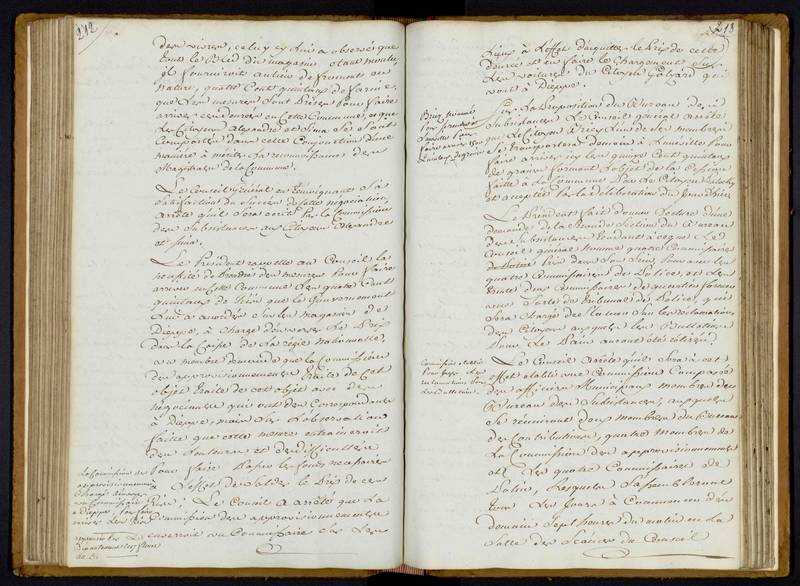 212
des vivres, celuy cy lui a observé que
tout le Bled du magasin etant moulu,
il fourniroit au lieu de froment en
nature, quatre Cent quintaux de farine,
que les mesures sont Prises Pour faire
arriver ces denrées en Cette Commune, et que
les Citoyens Alexandre et Sima se sont
Comportés dans cette Conjonction d'une
maniere à meriter la reconnoissance des
Magistrats de la Commune.
Le Conseil General en temoignant Sa
Satisfaction du Succès de Cette négociation,
arrête qu'il sera écrit par la Commission
des Subsistances aux Citoyens Alexandre
et Sima.
Le President rappelle au Conseil la
necessité de Prendre des mesures Pour faire
arriver en Cette Commune les quatre Cent
quintaux de que le Gouvernement
lui a accordés sur les magasins de
Dieppe, à charge d'en verser le Prix
dans la Caisse de la regie nationale,
un membre demande que la Commission
des approvisionnements traite de Cet
objet traite de cet objet avec des
négociants qui ont des Correspondances
à Dieppe, mais sur l'observation
faite que cette mesure entraineroit
des lenteurs et des difficultés
Pour faire Passer les fonds necessaires
à l'effet de solder le Prix de ces
; Le Conseil a arrêté que la
Commission des approvisionnements
enverroit un Commissaire sur les
La Commission des
approvisionnements
chargé d'envoyer
un Commissaire
à Dieppe, Pour faire
arriver les
213
Lieux à l'effet d'acquitter le Prix de cette
denrée et en faire le Chargement sur
les voitures du Citoyen Galzard qui
vont à Dieppe.
Sur la Proposition du Bureau des
Subsistances Le Conseil general arrête
que le Citoyen Briez l'un de ses membres
se transportera demain à Luneville Pour
faire arriver icy les quinze Cent quintaux
de grains formant l'objet de la Cession
faite à la Commune Par le Citoyen
et acceptée Par la deliberation du
Briez nommé
Pour se rendre à
Luneville Pour
faire arriver 1500
quintaux de grains
Le President fait donner lecture d'une
demande de la Seconde Section du Bureau
des Subsistances tendant à ce que Le
Conseil general nomme quatre Commissaires
Pris dans son sein, Pour avec les
quatre Commissaires de Police, et les
trente deux Commissaires de quartiers former
une Sorte de tribunal de Police, qui
sera Chargé de statuer sur les reclamations
des Citoyens auxquels les Bulletins
Pour le Pain auront été retirés.
Le Conseil arrête qu'il sera à cet
effet etabli une Commission Composée
des officiers Municipaux membres du
Bureau des Subsistances, auxquels
se reuniront deux membres du Bureau
des Contributions, quatre membres de
la Commission des approvisionnements
et les quatre Commissaires de
Police, lesquels s'assembleront
tous les jours à Commencer de
demain Sept heures du matin en la
Salle des Séances du Conseil
Commission etablie
Pour juger les
reclamations Pour
les Bulletins.